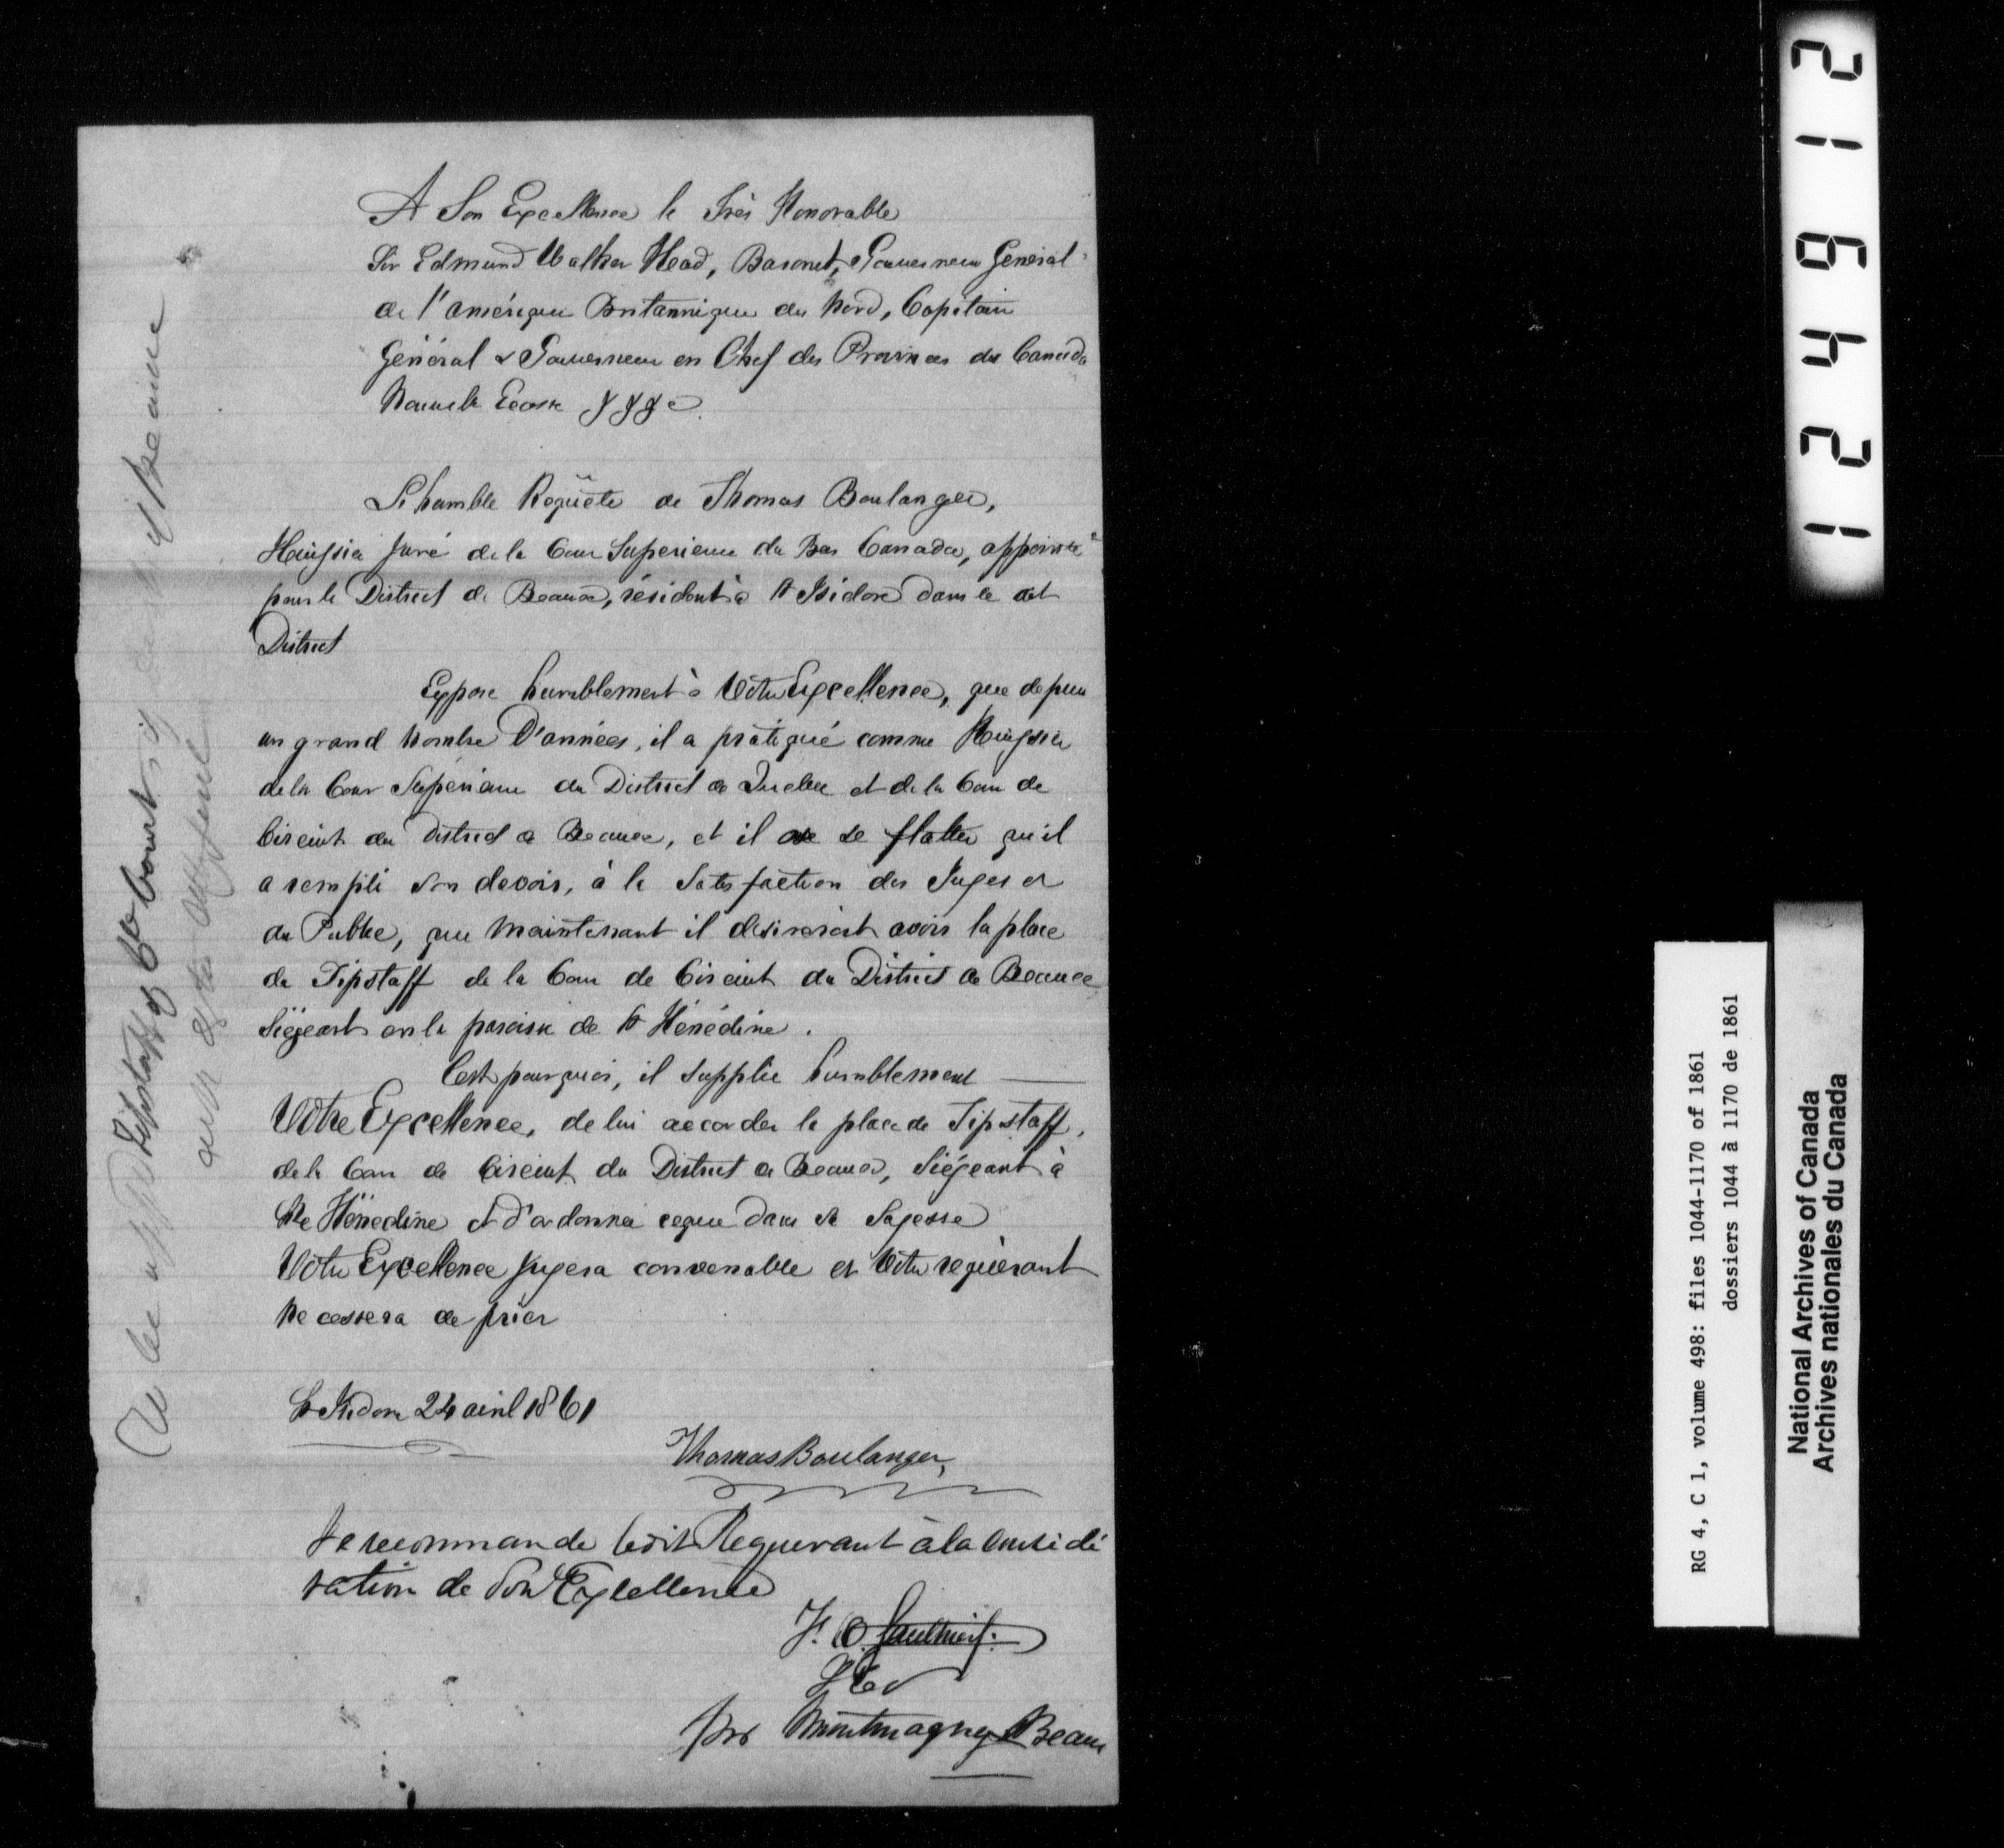 A Son Excellence le Très Honorable
Sir Edmund Walker Head, Baronet, Gouverneur Général
de l'amérique Britannique du Nord, Capitaine
Général & Gouverneur en Chef des Provinces du Canada
Nouvelle Ecosse &&&c.
L'humble Requête de Thomas Boulanger,
Huissier Juré de la Cour Superieure du Bas Canada, appointé
pour le District de Beauce, résidant à St Isidore dans le dit
District
Expose humblement à Votre Excellence, que depuis
un grand nombre d'années, il a pratiqué comme Huissier
de la Cour Supérieure du District de Quebec et de la Cour de
Circuit du District de Beauce, et il ose se flatter qu'il
a rempli son devoir, à la Satisfaction des Juges et
du Public, que maintenant il desirerait avoir la place
de Tipstaff de la Cour de Circuit du District de Beauce
Siégeant en la paroisse de Ste Hénédine.
C'est pourquoi, il supplie humblement
Votre Excellence, de lui accorder la place de Tipstaff,
de la Cour de Circuit du District de Beauce, Siégeant à
Ste Hénedine et d'ordonner ceque dans sa Sagesse
Votre Excellence jugera convenable et Votre requérant
ne cessera de prier
St Isidore 24 avril 1861
Thomas Boulanger,
Je recommande ledit Requerant à la considé
ration de Son Excellence
J. O. Gauthier.
pour Montmagny & Beauce
Tipstaff of Co Court
RG 4, C 1, volume 498: files 1044-1170 of 1861
dossiers 1044 à 1170 de 1861
National Archives of Canada
Archives nationales du Canada
124612